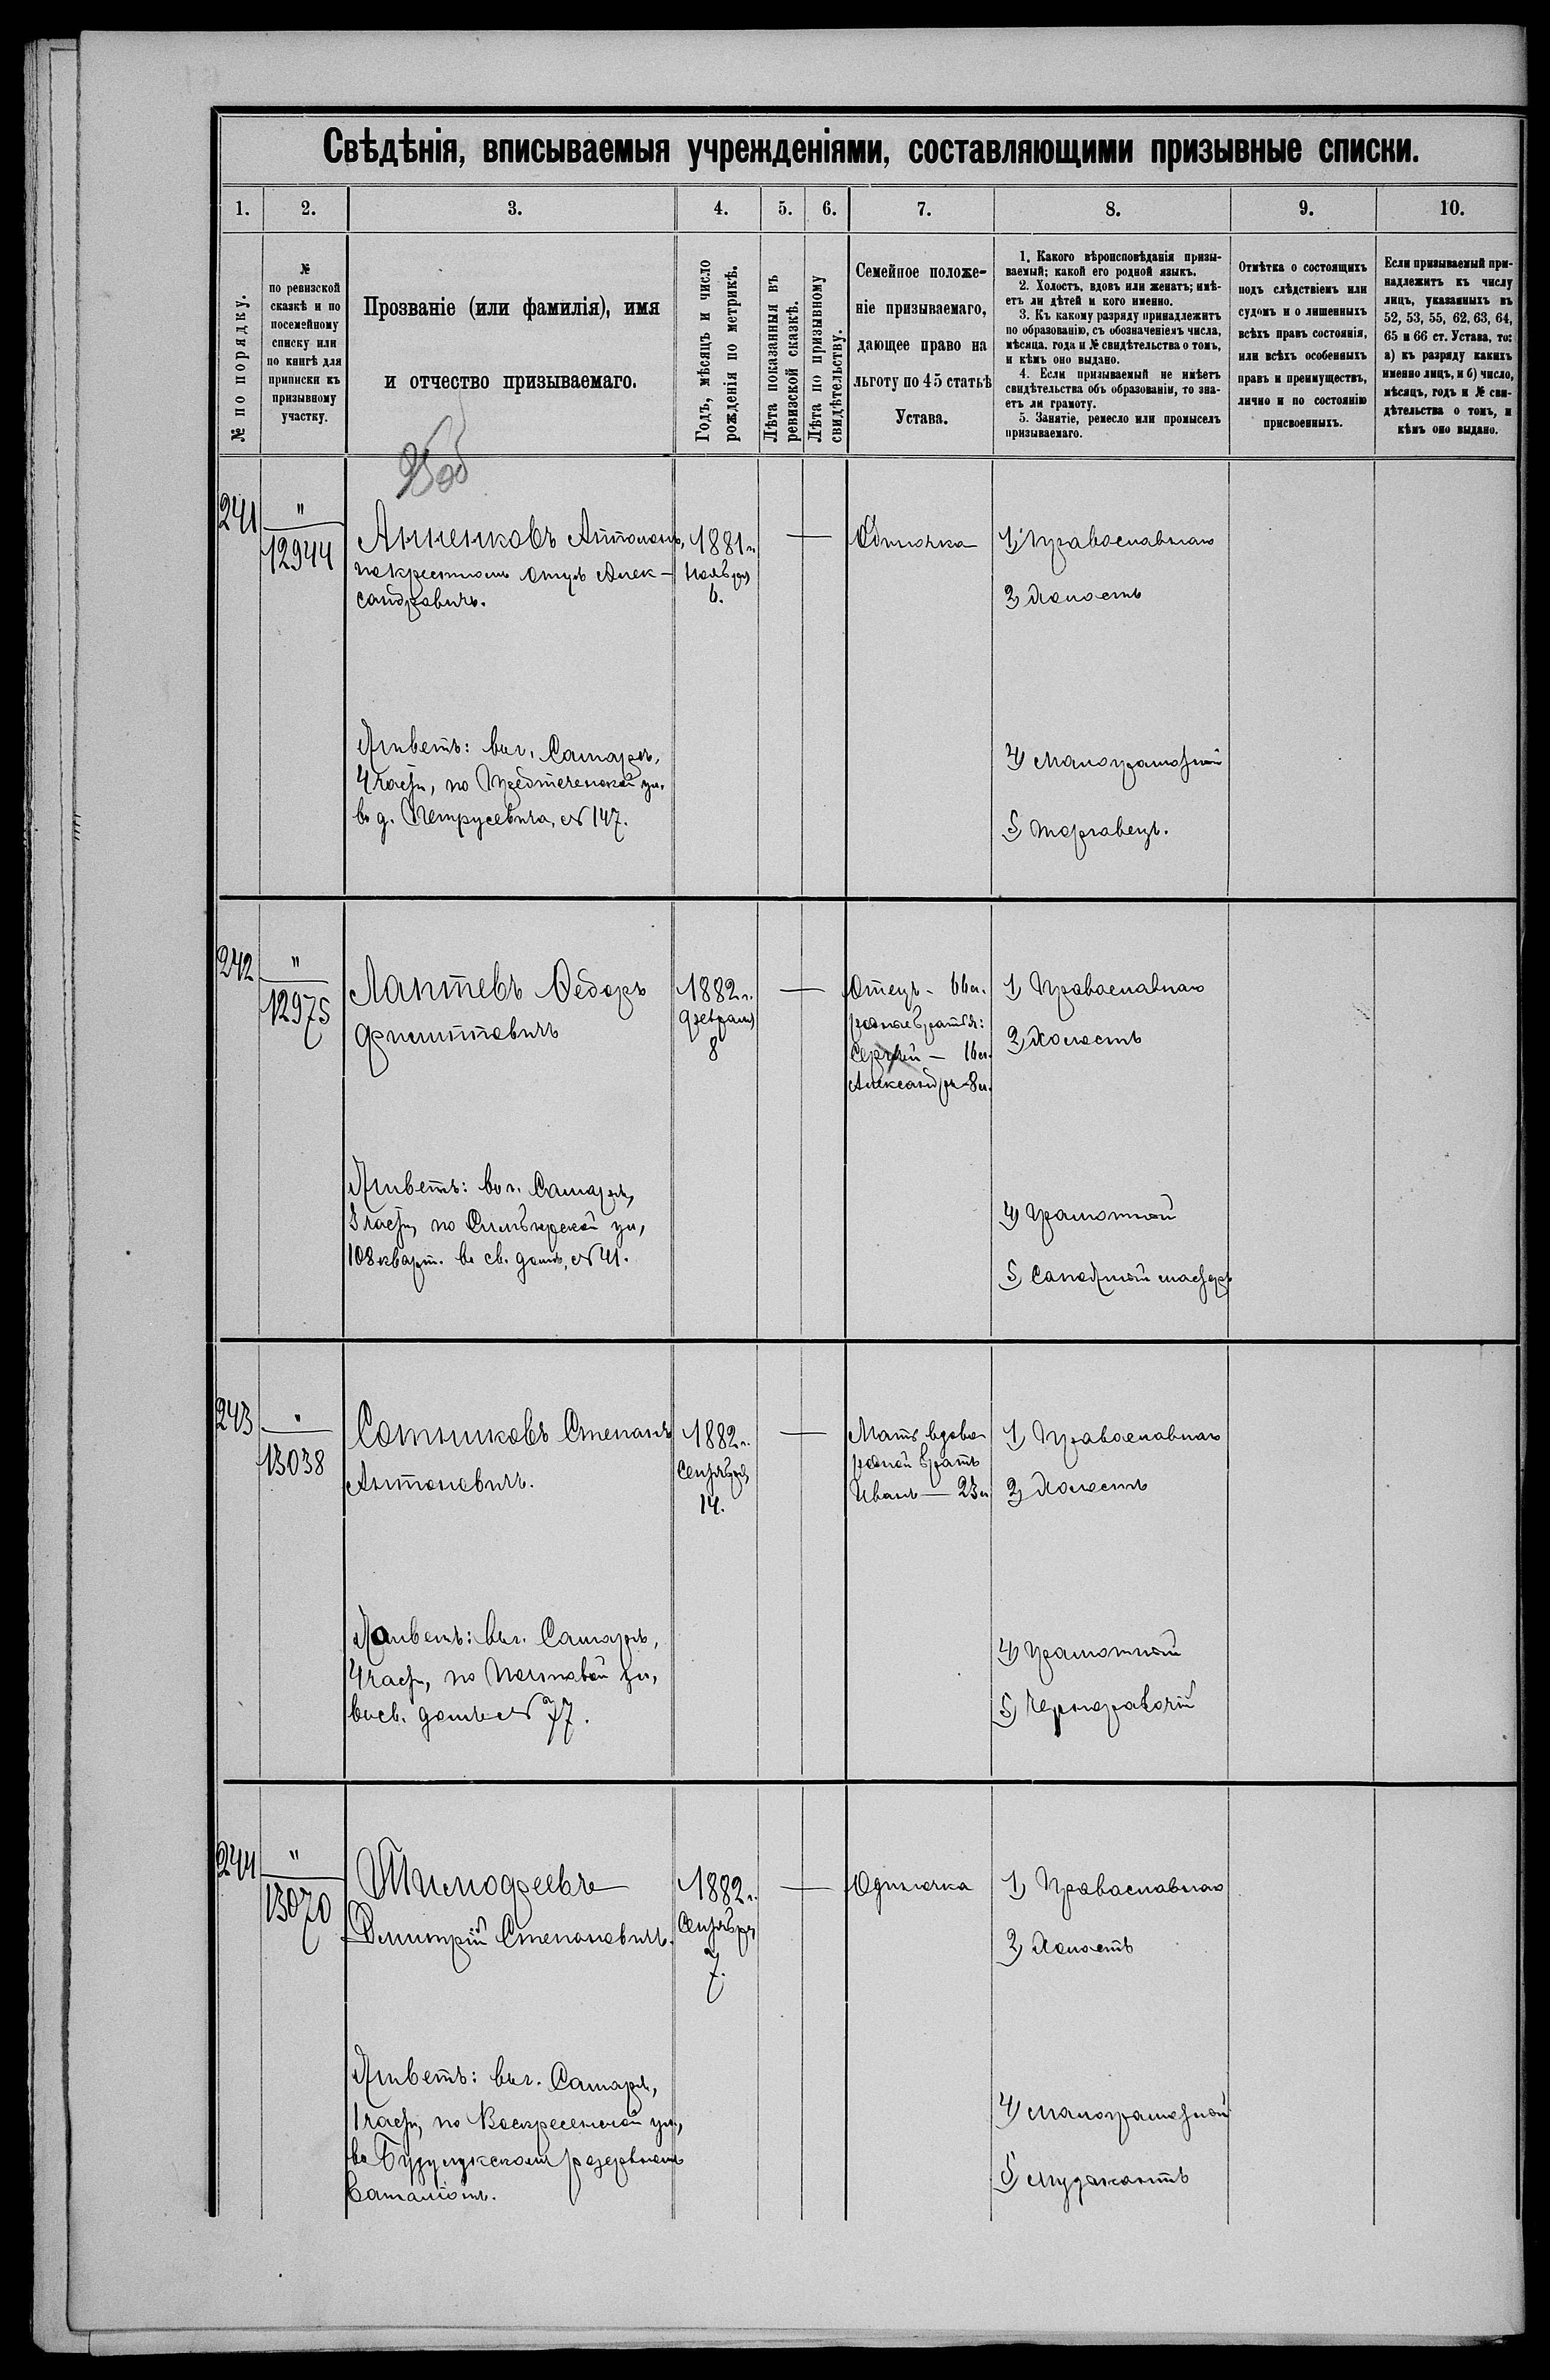 Свѣдѣнія, вписываемыя учрежденіями, составляющими призывные списки.
1. 2. 3. 4. 5. 6. 7. 8. 9. 10.
№ по порядку.
№
по ревизской
сказкѣ и по
посемейному
списку или
по книгѣ для
приписки къ
призывному
участку.
Прозваніе (или фамилія), имя
и отчество призываемаго.
Годъ, мѣсяцъ и число
рожденія по метрикѣ.
Лѣта показанныя въ
ревизской сказкѣ.
Лѣта по призывному
свидѣтельству.
Семейное положе-
ніе призываемаго,
дающее право на
льготу по 45 статьѣ
Устава.
1. Какого вѣроисповѣданія призы-
ваемый; какой его родной языкъ.
2. Холостъ, вдовъ или женатъ; имѣ-
етъ ли дѣтей и кого именно.
3. Къ какому разряду принадлежитъ
по образованію, съ обозначеніемъ числа,
мѣсяца, года и № свидѣтельства о томъ,
и кѣмъ оно выдано.
4. Если призываемый не имѣетъ
свидѣтельства объ образованіи, то зна-
етъ ли грамоту.
5. Занятіе, ремесло или промыселъ
призываемаго.
Отмѣтка о состоящихъ
подъ слѣдствіемъ или
судомъ и о лишенныхъ
всѣхъ правъ состоянія,
или всѣхъ особенныхъ
правъ и преимуществъ,
лично и по состоянію
присвоенныхъ.
Если призываемый при-
надлежитъ къ числу
лицъ, указанныхъ въ
52, 53, 55, 62, 63, 64,
65 и 66 ст. Устава, то:
а) къ разряду какихъ
именно лицъ, и б) число,
мѣсяцъ, годъ и № сви-
дѣтельства о томъ, и
кѣмъ оно выдано.
241
"
12944
Анненковъ Антонъ,
по крестном отцѣ Алек-
сандровичъ.
1881 г.
Ноября
6.
—
Одиночка
1) Православнаго
2) Холостъ
Живетъ: въ г. Самарѣ,
4 части, по Предтеченской ул.
въ д. Петрусевича, № 147.
4) Малограмотный
5) Торговецъ.
242
"
12975
Лаптевъ Ѳедоръ
Филипповичъ
1882 г.
февраля
8
—
Отецъ - 66 л.
родные братья:
Сергѣй — 16 л.
Александръ - 8 л.
1) Православнаго
2) Холостъ
Живетъ: въ г. Самарѣ,
5 части, по Симбирской ул,
108 кварт. въ св. домѣ, № 41.
4) Грамотный
5) Сапожный мастеръ
243
"
13038
Сотниковъ Степанъ
Антоновичъ.
1882 г.
Сентября
14.
—
Мать вдова
родной братъ
Иванъ — 23 л
1) Православнаго
2) Холостъ
Живетъ: въ г. Самарѣ,
4 части, по Почтовой ул,
въ св. домѣ № 77.
4) Грамотный
5) Чернорабочій
244
"
13070
Тимофеевъ
Димитрій Степановичъ.
1882 г.
Сентября
7.
—
Одиночка
1) Православнаго
2) Холостъ
Живетъ: въ г. Самарѣ,
1 части, по Воскресенской ул,
въ Бузулукскомъ резервномъ
баталіонѣ.
4) Малограмотный
5) Музыкантъ